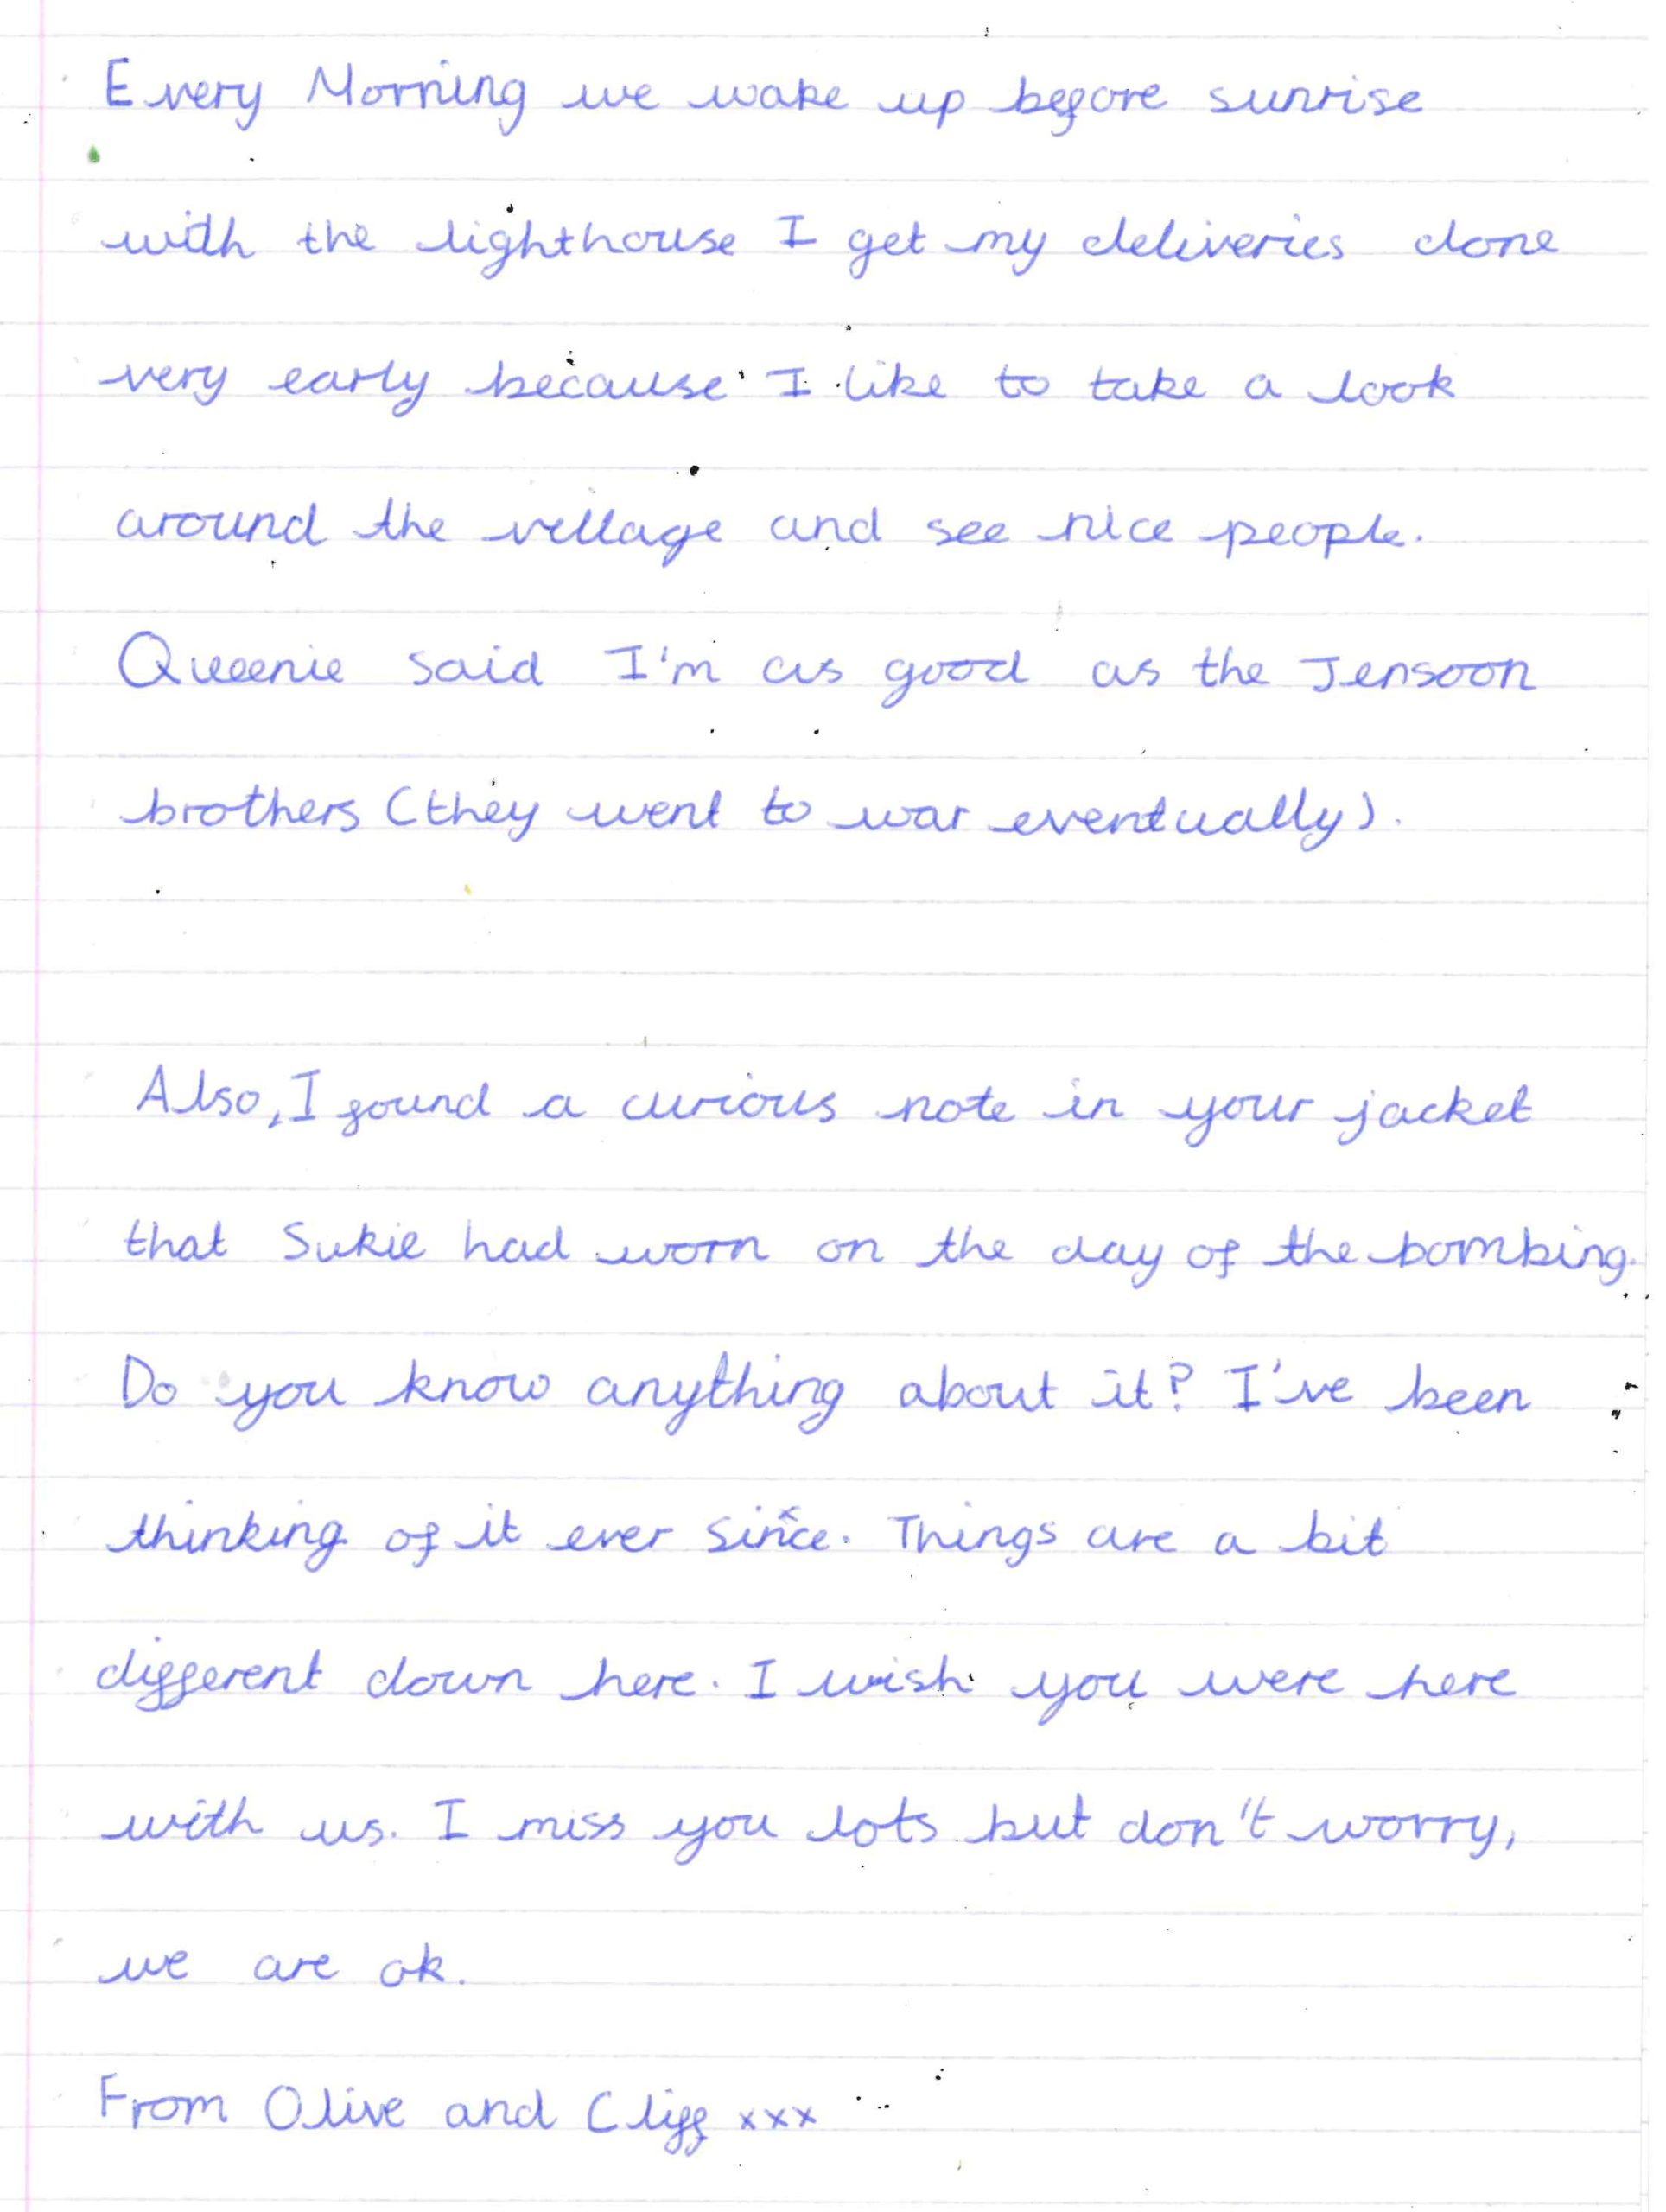 Every Morning we wake up before sunrise
with the lighthouse I get my deliveries done
very early because I like to take a look
around the village and see nice people.
Queeenie said I'm as good as the Jensoon
brothers (they went to war eventually).
Also, I found a curious note in your jacket
that Sukie had worn on the day of the bombing.
Do you know anything about it? I've been
thinking of it ever since. Things are a bit
different down here. I wish you were here
with us. I miss you lots but don't worry,
we are ok.
From Olive and Cliff xxx